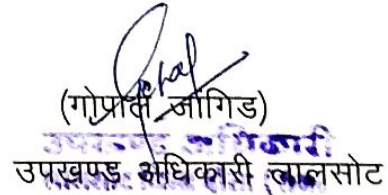 (गोपाल जांगिड)
उपखण्ड अधिकारी
उपखण्ड अधिकारी लालसोट